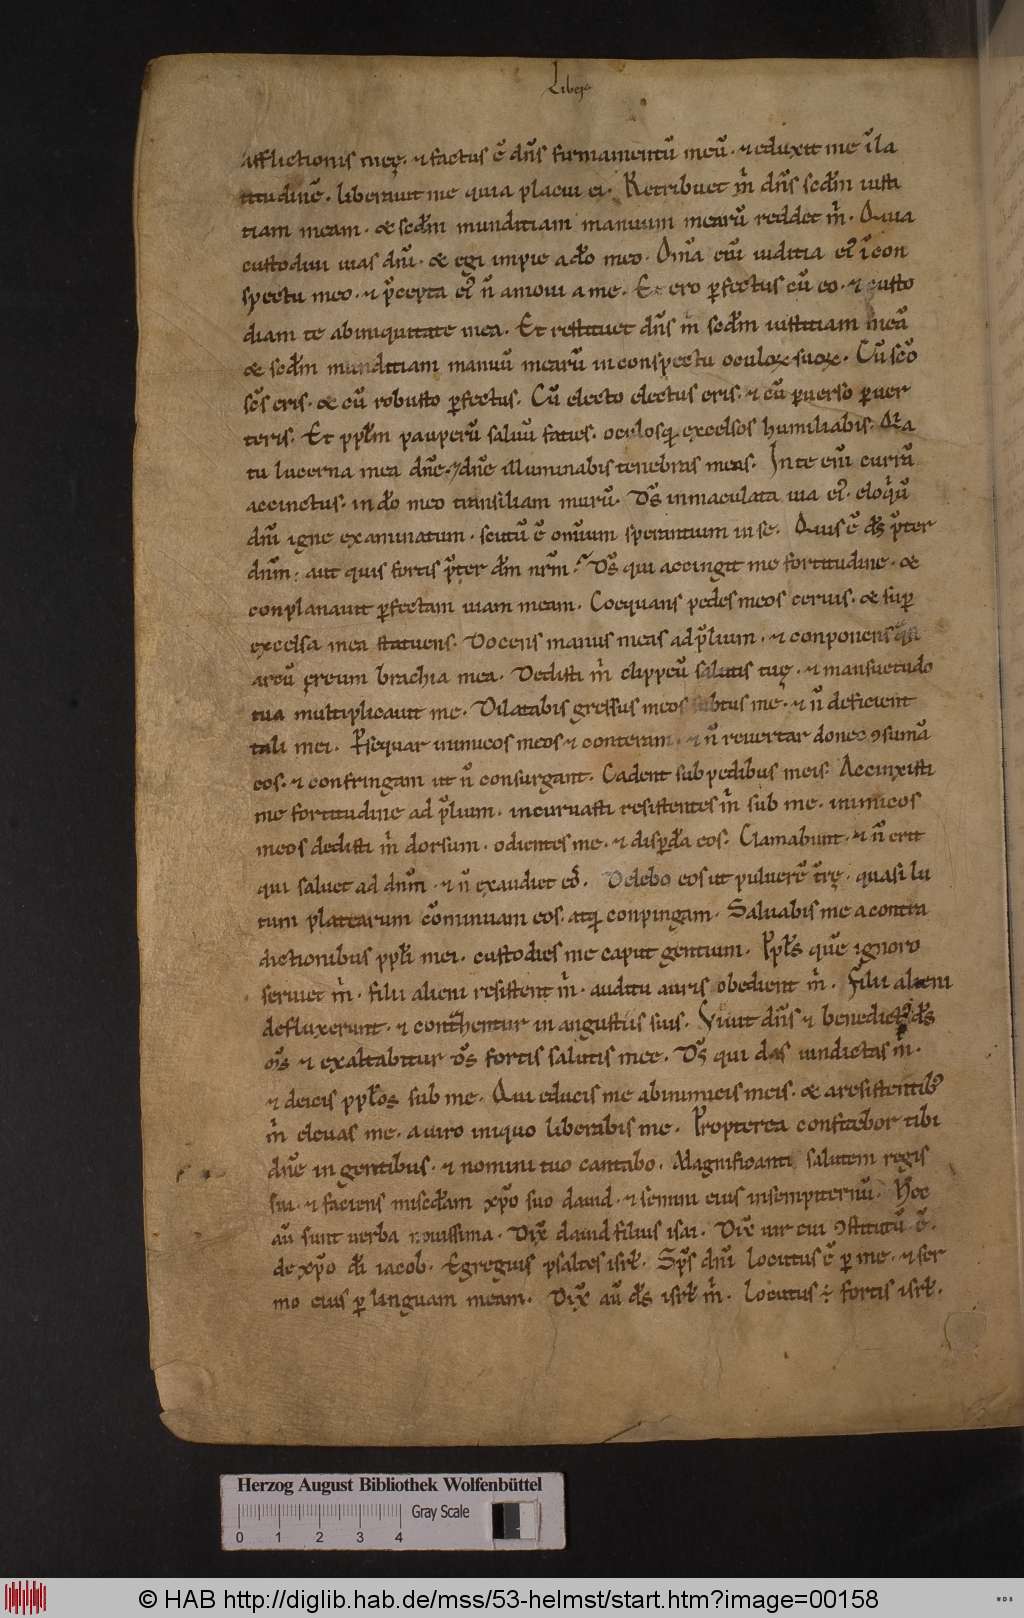 Liber
afflictionis meę. ⁊ factus ē dñs firmamentū meū. ⁊ eduxit me ĩ la
titudinē. liberavit me quia placui ei. Retribuet m̃ dñs scd̃m iusti
tiam meam. & scd̃m munditiam manuum mearū reddet m̃. Quia
custodivi vias dñi. & egi impie a dō meo. Om̃ia eni iuditia ei᷒ ĩ con
spectu meo. ⁊ p̃cepta ei᷒ ñ amovi a me. Et ero ꝑfectus cū eo. ⁊ custo
diam te ab iniquitate mea. Et restituet dñs m̃ scd̃m iustitiam meā
& scd̃m munditiam manuū mearū in conspectu oculoꝝ suoꝝ. Cū sc̃o
sc̃s eris. & cū robusto ꝑfectus. Cū electo electus eris. ⁊ cū ꝑverso ꝑver
teris. Et ppl̃m pauperū saluū facies. oculosq; excelsos humiliabis. Q̃a
tu lucerna mea dñe. ⁊ dñe illuminabis tenebras meas. In te eni currā
accinctus. in dō meo transiliam murū. Ds̃ inmaculata via ei᷒. eloq̃ū
dñi igne examinatum. scutū ē omium sperantium in se. Quis ē ds̃ p̃ter
dñm; aut quis fortis p̃ter dm̃ nr̃m? Ds̃ qui accingit me fortitudine. &
conplanavit ꝑfectam viam meam. Coequans pedes meos cervis. & sup̱
excelsa mea statuens. Docens manus meas ad p̃lium. ⁊ conponens q̃si
arcū ęreum brachia mea. Dedisti m̃ clippeū salutis tuę. ⁊ mansuetudo
tua multiplicavit me. Dilatabis gressus meos subtus me. ⁊ ñ deficient
tali mei. Ꝑsequar inimicos meos ⁊ conteram. ⁊ ñ revertar donec ꝯsumā
eos. ⁊ confringam ut ñ consurgant. Cadent sub pedibus meis. Accinxisti
me fortitudine ad p̃lium. incurvasti resistentes m̃ sub me. inimicos
meos dedisti m̃ dorsum. odientes me. ⁊ disꝑdā eos. Clamabunt. ⁊ ñ erit
qui salvet ad dñm. ⁊ ñ exaudiet eos. Delebo eos ut pulverē tr̃ę. quasi lu
tum platearum cōminuam eos. atq; conpingam. Salvabis me a contra
dictionibus ppl̃i mei. custodies me caput gentium. Ppl̃s quē ignoro
serviet m̃. filii alieni resistent m̃. auditu auris obedient m̃. Filii alieni
defluxerunt. ⁊ contr̃hentur in angustiis suis. Vivit dñs ⁊ benedict᷒ ds̃
ms̃ ⁊ exaltabitur ds̃ fortis salutis mee. Ds̃ qui das vindictas m̃.
⁊ deicis ppl̃os sub me. Qui educis me ab inimicis meis. & a resistentib᷒
m̃ elevas me. a viro iniquo liberabis me. Propterea confitebor tibi
dñe in gentibus. ⁊ nomini tuo cantabo. Magnificanti salutem regis
sui. ⁊ faciens misc̃dīam xp̃o suo david. ⁊ semini eius in sempiternū. Hec
aū sunt verba novissima. Dix̃ david filius isai. Dix̃ vir cui ꝯstitutū ē.
de xp̃o dī iacob. Egregius psaltes isrl̃. Sp̃s dñi locutus ē ꝑ me. ⁊ ser
mo eius ꝑ linguam meam. Dix̃ aū ds̃ isrl̃ m̃. locutus ÷ fortis isrl̃.
Herzog August Bibliothek Wolfenbüttel
Gray Scale
0 1 2 3 4
© HAB http://diglib.hab.de/mss/53-helmst/start.htm?image=00158